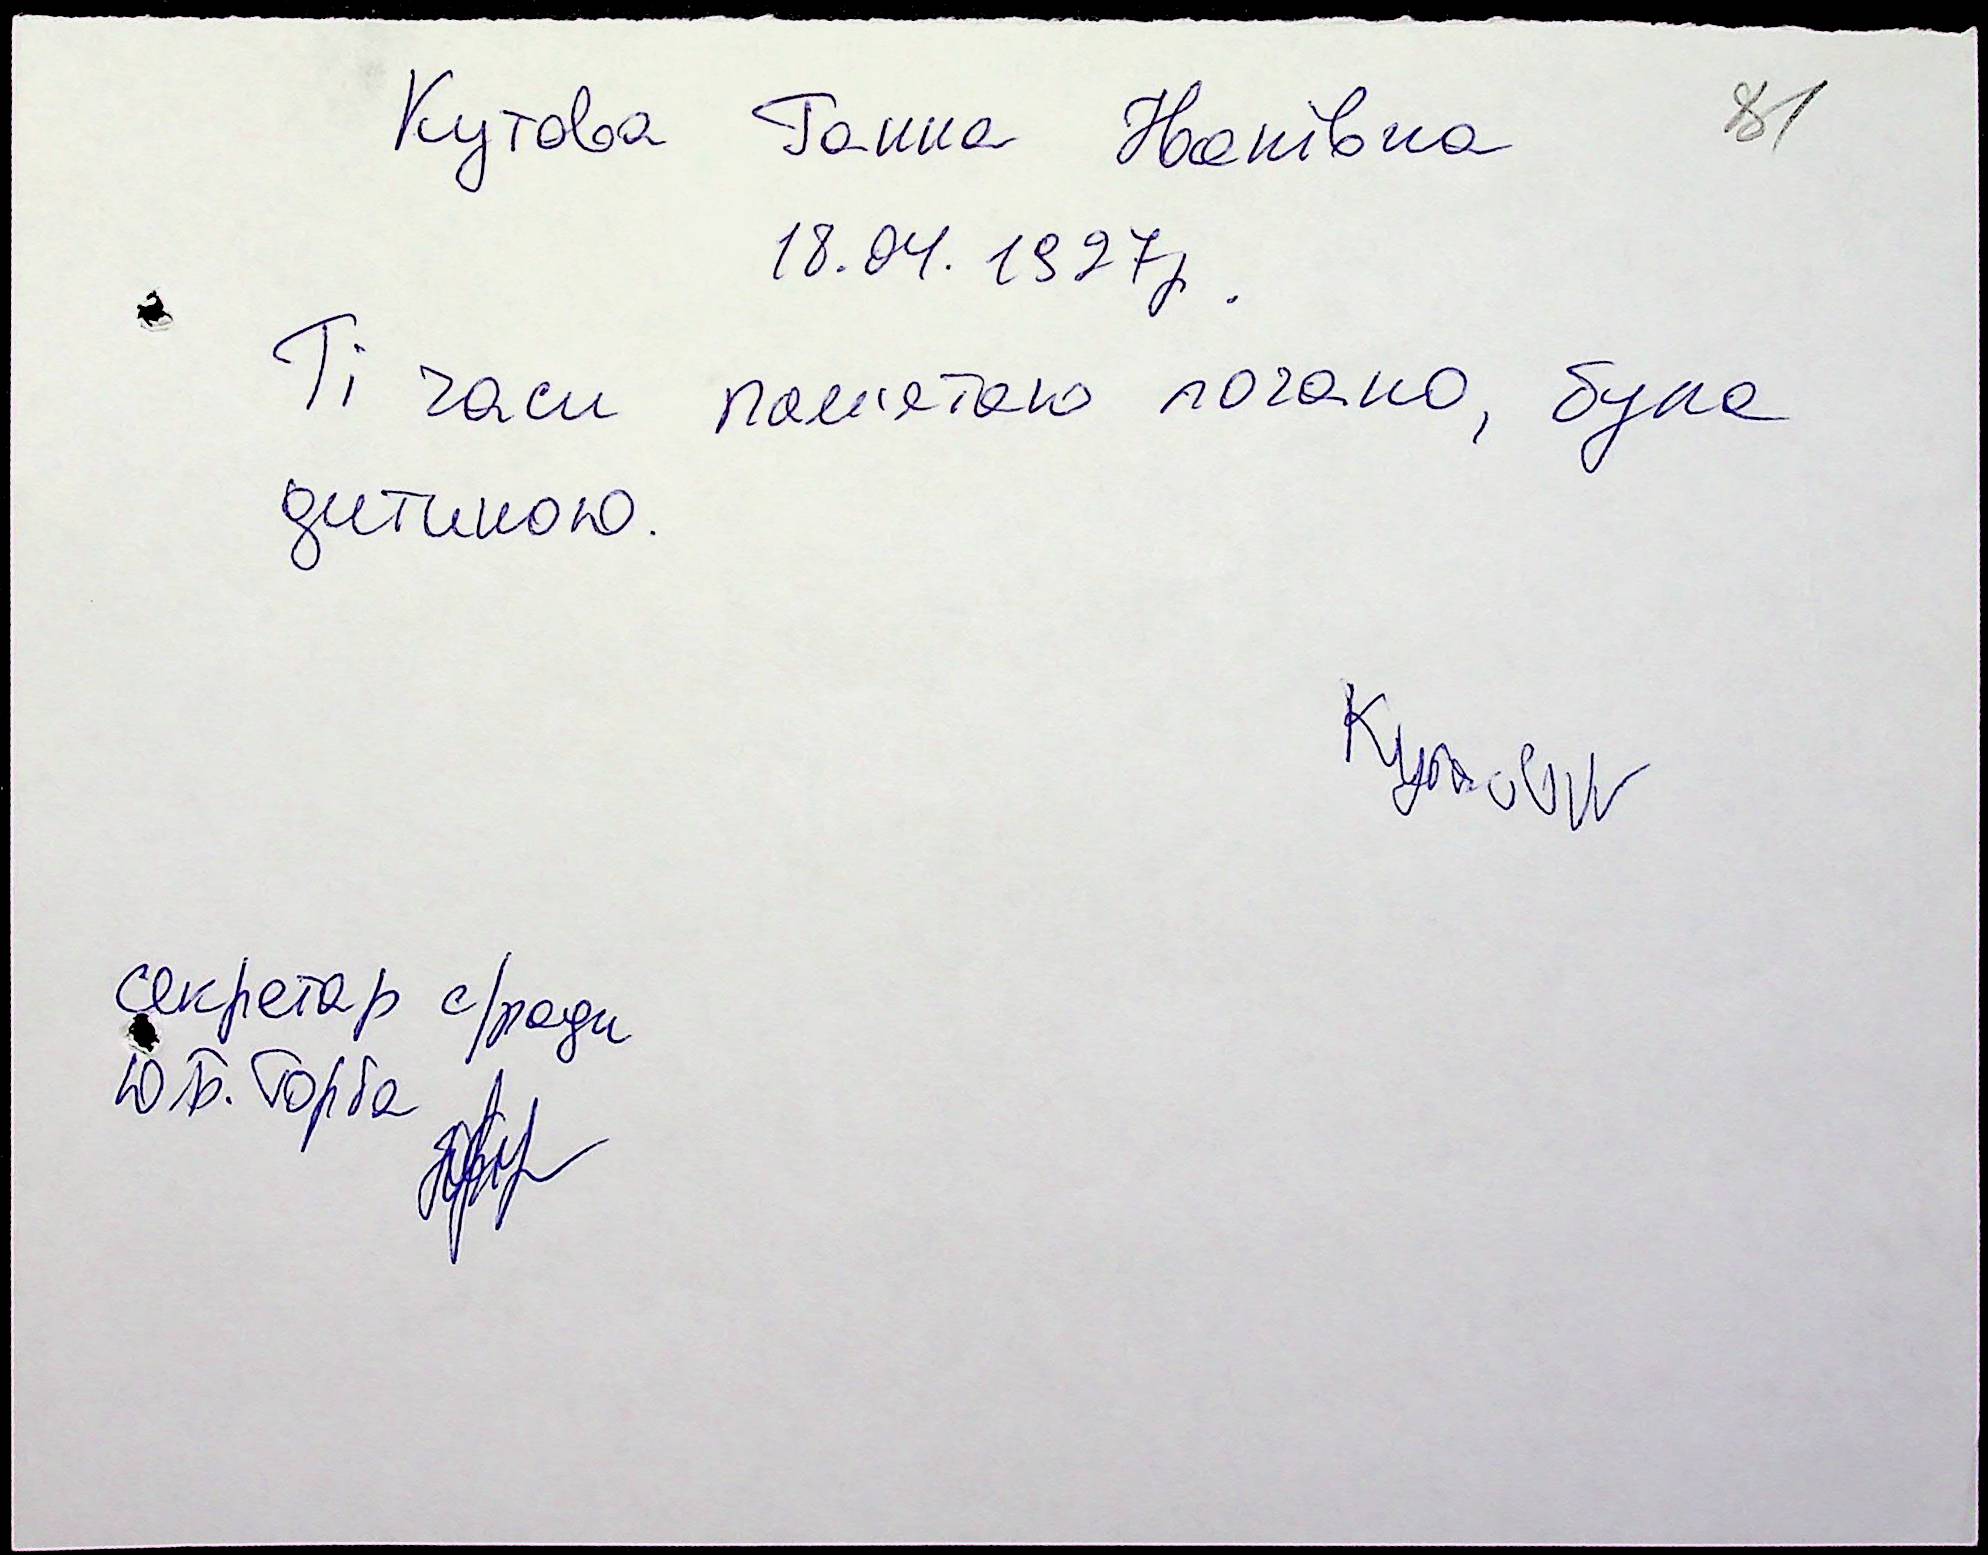 Кутова Ганна Іванівна 81
18.04.1927р.
Ті часи памʼятаю погано, була
дитиною.
Кутова
секретар с/ради
Ю.Б. Горба